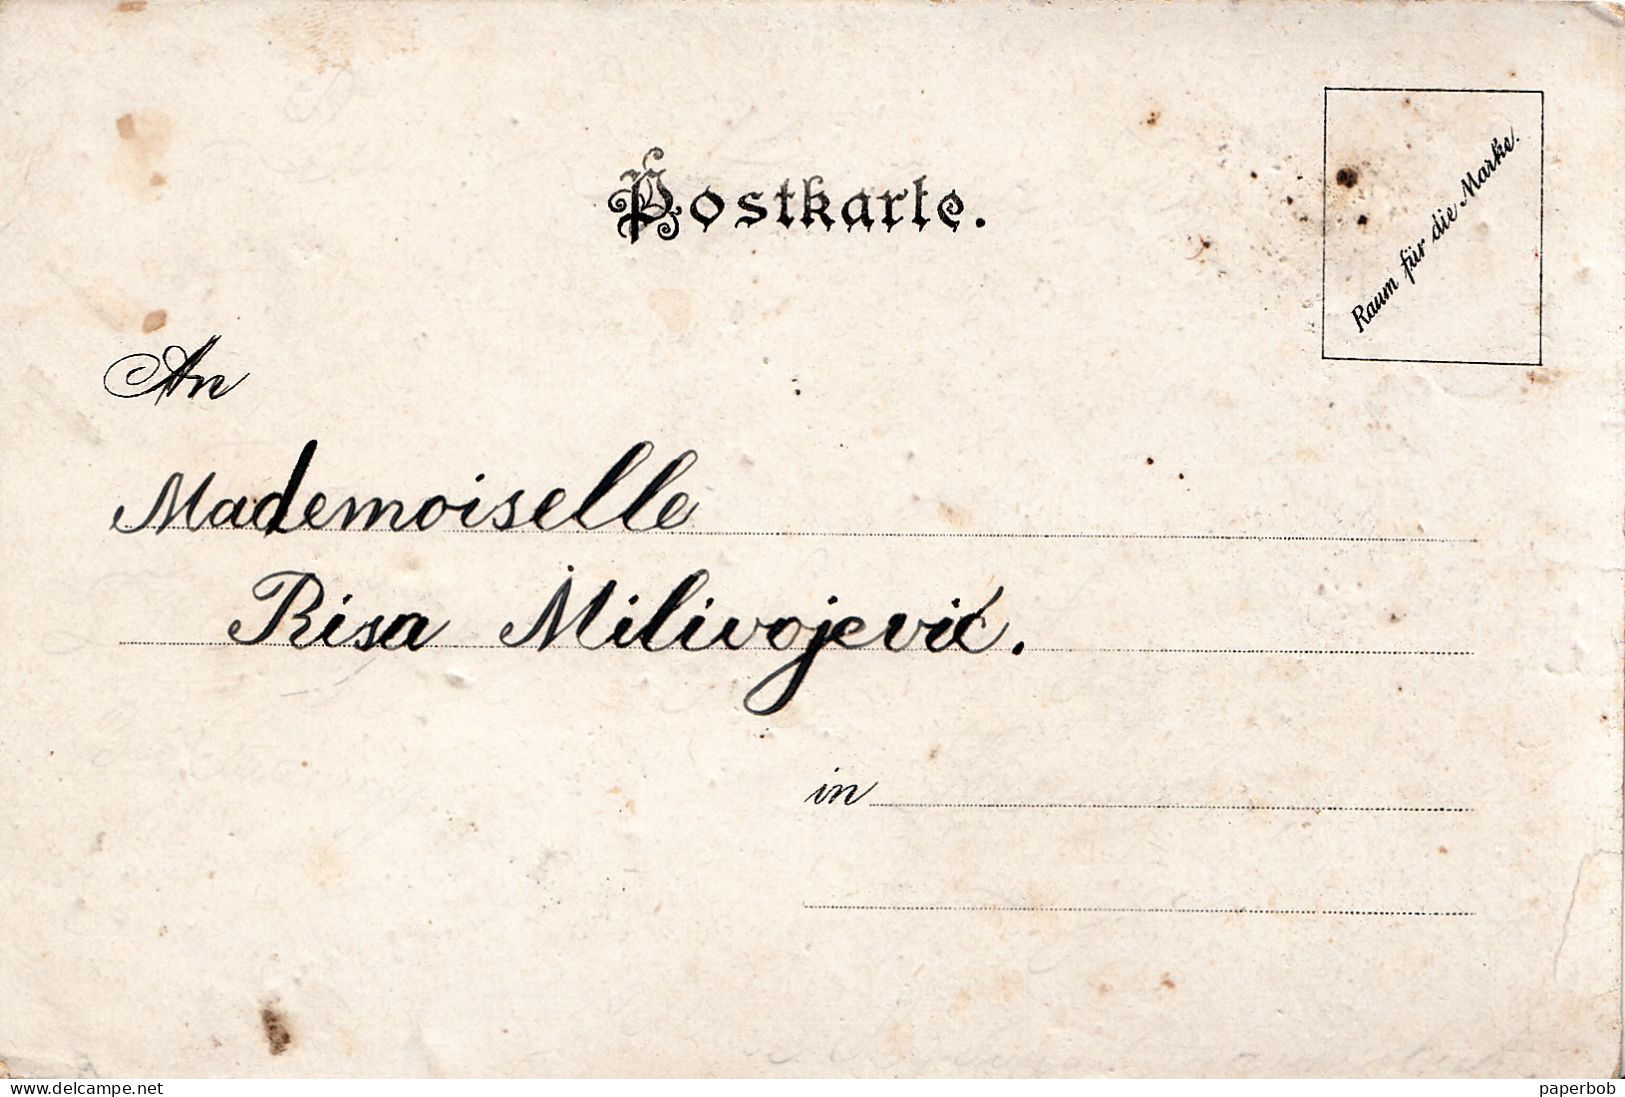 Postkarte.
Raum für die Marke.
An
Mademoiselle
Risa Milivojević.
in
www.delcampe.net
paperbob